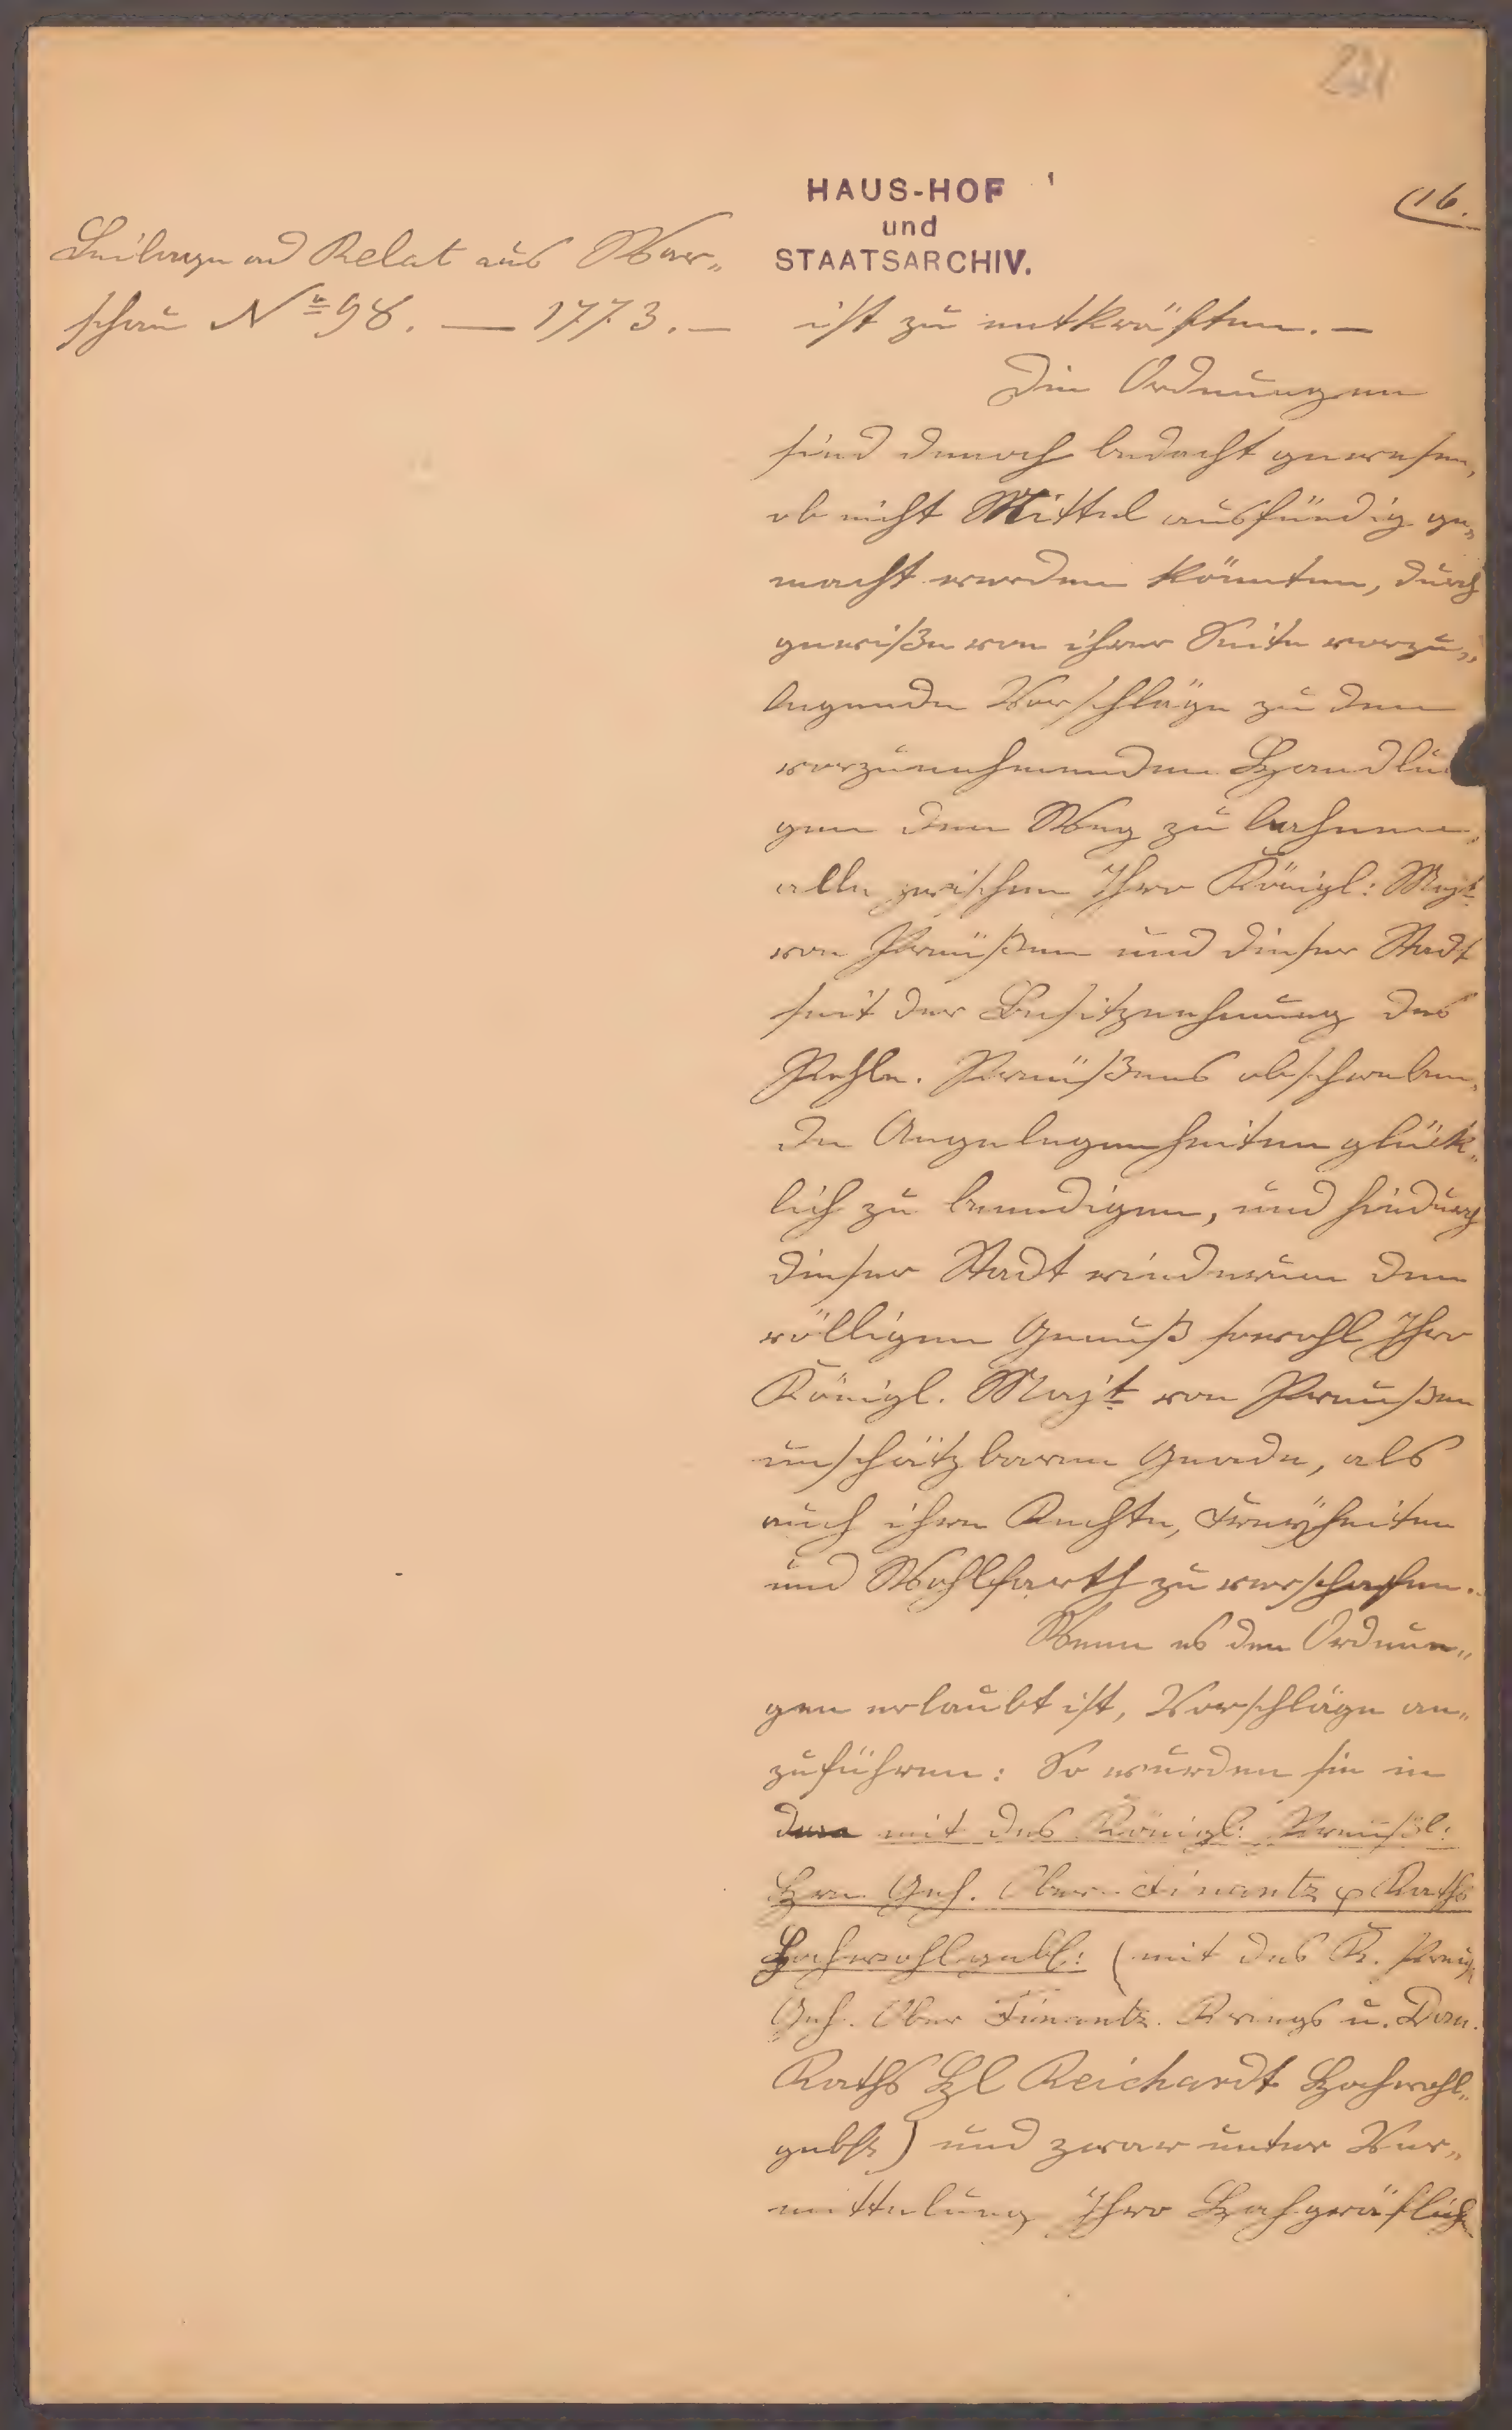 221
HAUS-HOF
und
STAATSARCHIV.
16.
Beilage ad Relat aus War„
schau No 98. — 1773. —
ist zu entkräften. —
Die Ordnungen
sind denoch bedacht gewesen,
ob nicht Mittel ausfündig ge„
macht werden könnten, durch
gewiße von ihrer Seite vorzu„
legende Vorschläge zu den
vorzunehmenden Handlun
gen den Weg zu bahnen,
alle zwischen Ihro Königl: Majt
von Preüßen und dieser Stadt
seit der Besitznehmung des
Pohln. Preüßens obschweben„
de Angelegenheiten glück„
lich zu beendigen, und hiedurch
dieser Stadt wiederum den
völligen Genuß sowohl Ihro
Königl. Majt von Preußen
unschätzbaren Gnade, als
auch ihre Rechte, Freÿheiten
und Wohlfarth zu verschafen.
Wenn es den Ordnun„
gen erlaubt ist, Vorschläge an„
zuführen: So würden sie in
mit des Königl: Preüßl:
Hrn Geh. Ober-Finantz Raths
Hochwohlgebl: (mit des K. Preuß
Geh. Ober Finantz. Kriegs u. Dom.
Raths Hl Reichardt Hochwohl„
geb) und zwar unter Ver„
mittelung Ihro Hochgräflich